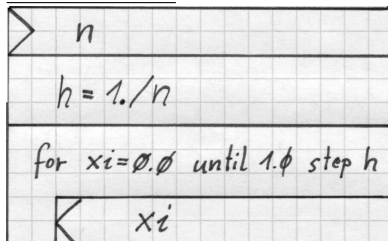 n
h = 1./n
for xi=0.0 until 1.0 step h
xi